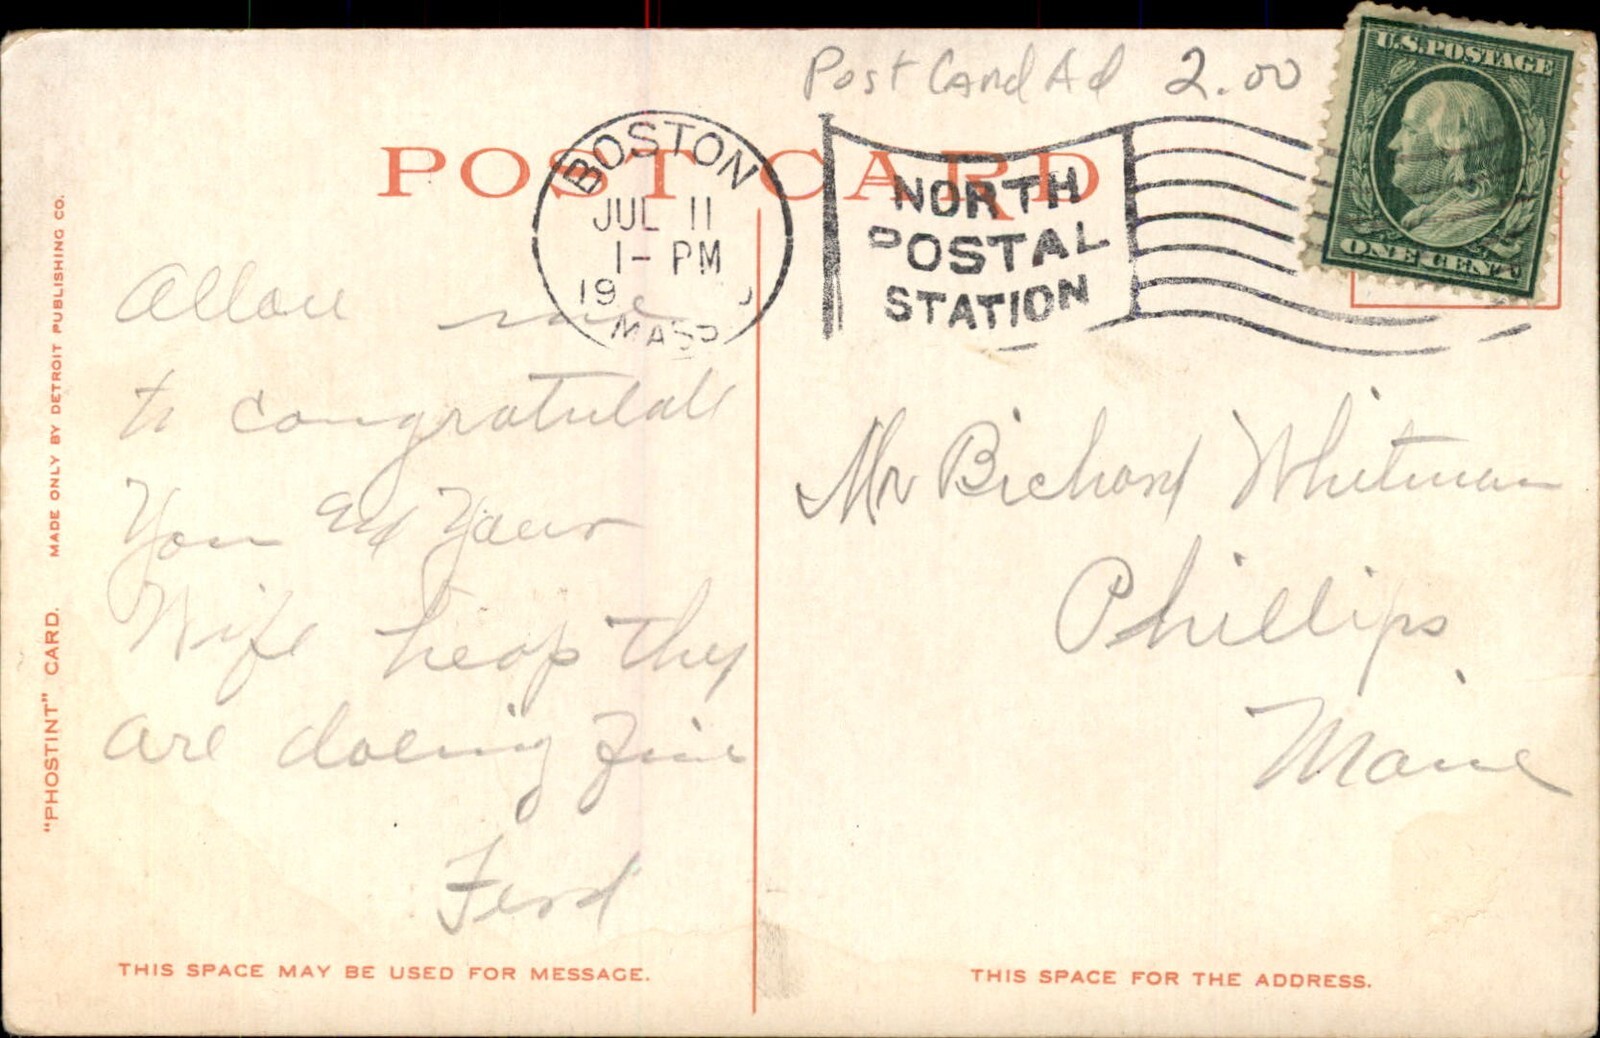 Post Card Ad 2.00
U.S. POSTAGE
ONE CENT
POST CARD
BOSTON
JUL 11
1- PM
19
MASS
NORTH
POSTAL
STATION
Allow me
to congratulate
You and Your
Wife heop they
are doeing fine
Ferd
Mr Richard Whitman
Phillips
Maine
"PHOSTINT" CARD. MADE ONLY BY DETROIT PUBLISHING CO.
THIS SPACE MAY BE USED FOR MESSAGE.
THIS SPACE FOR THE ADDRESS.